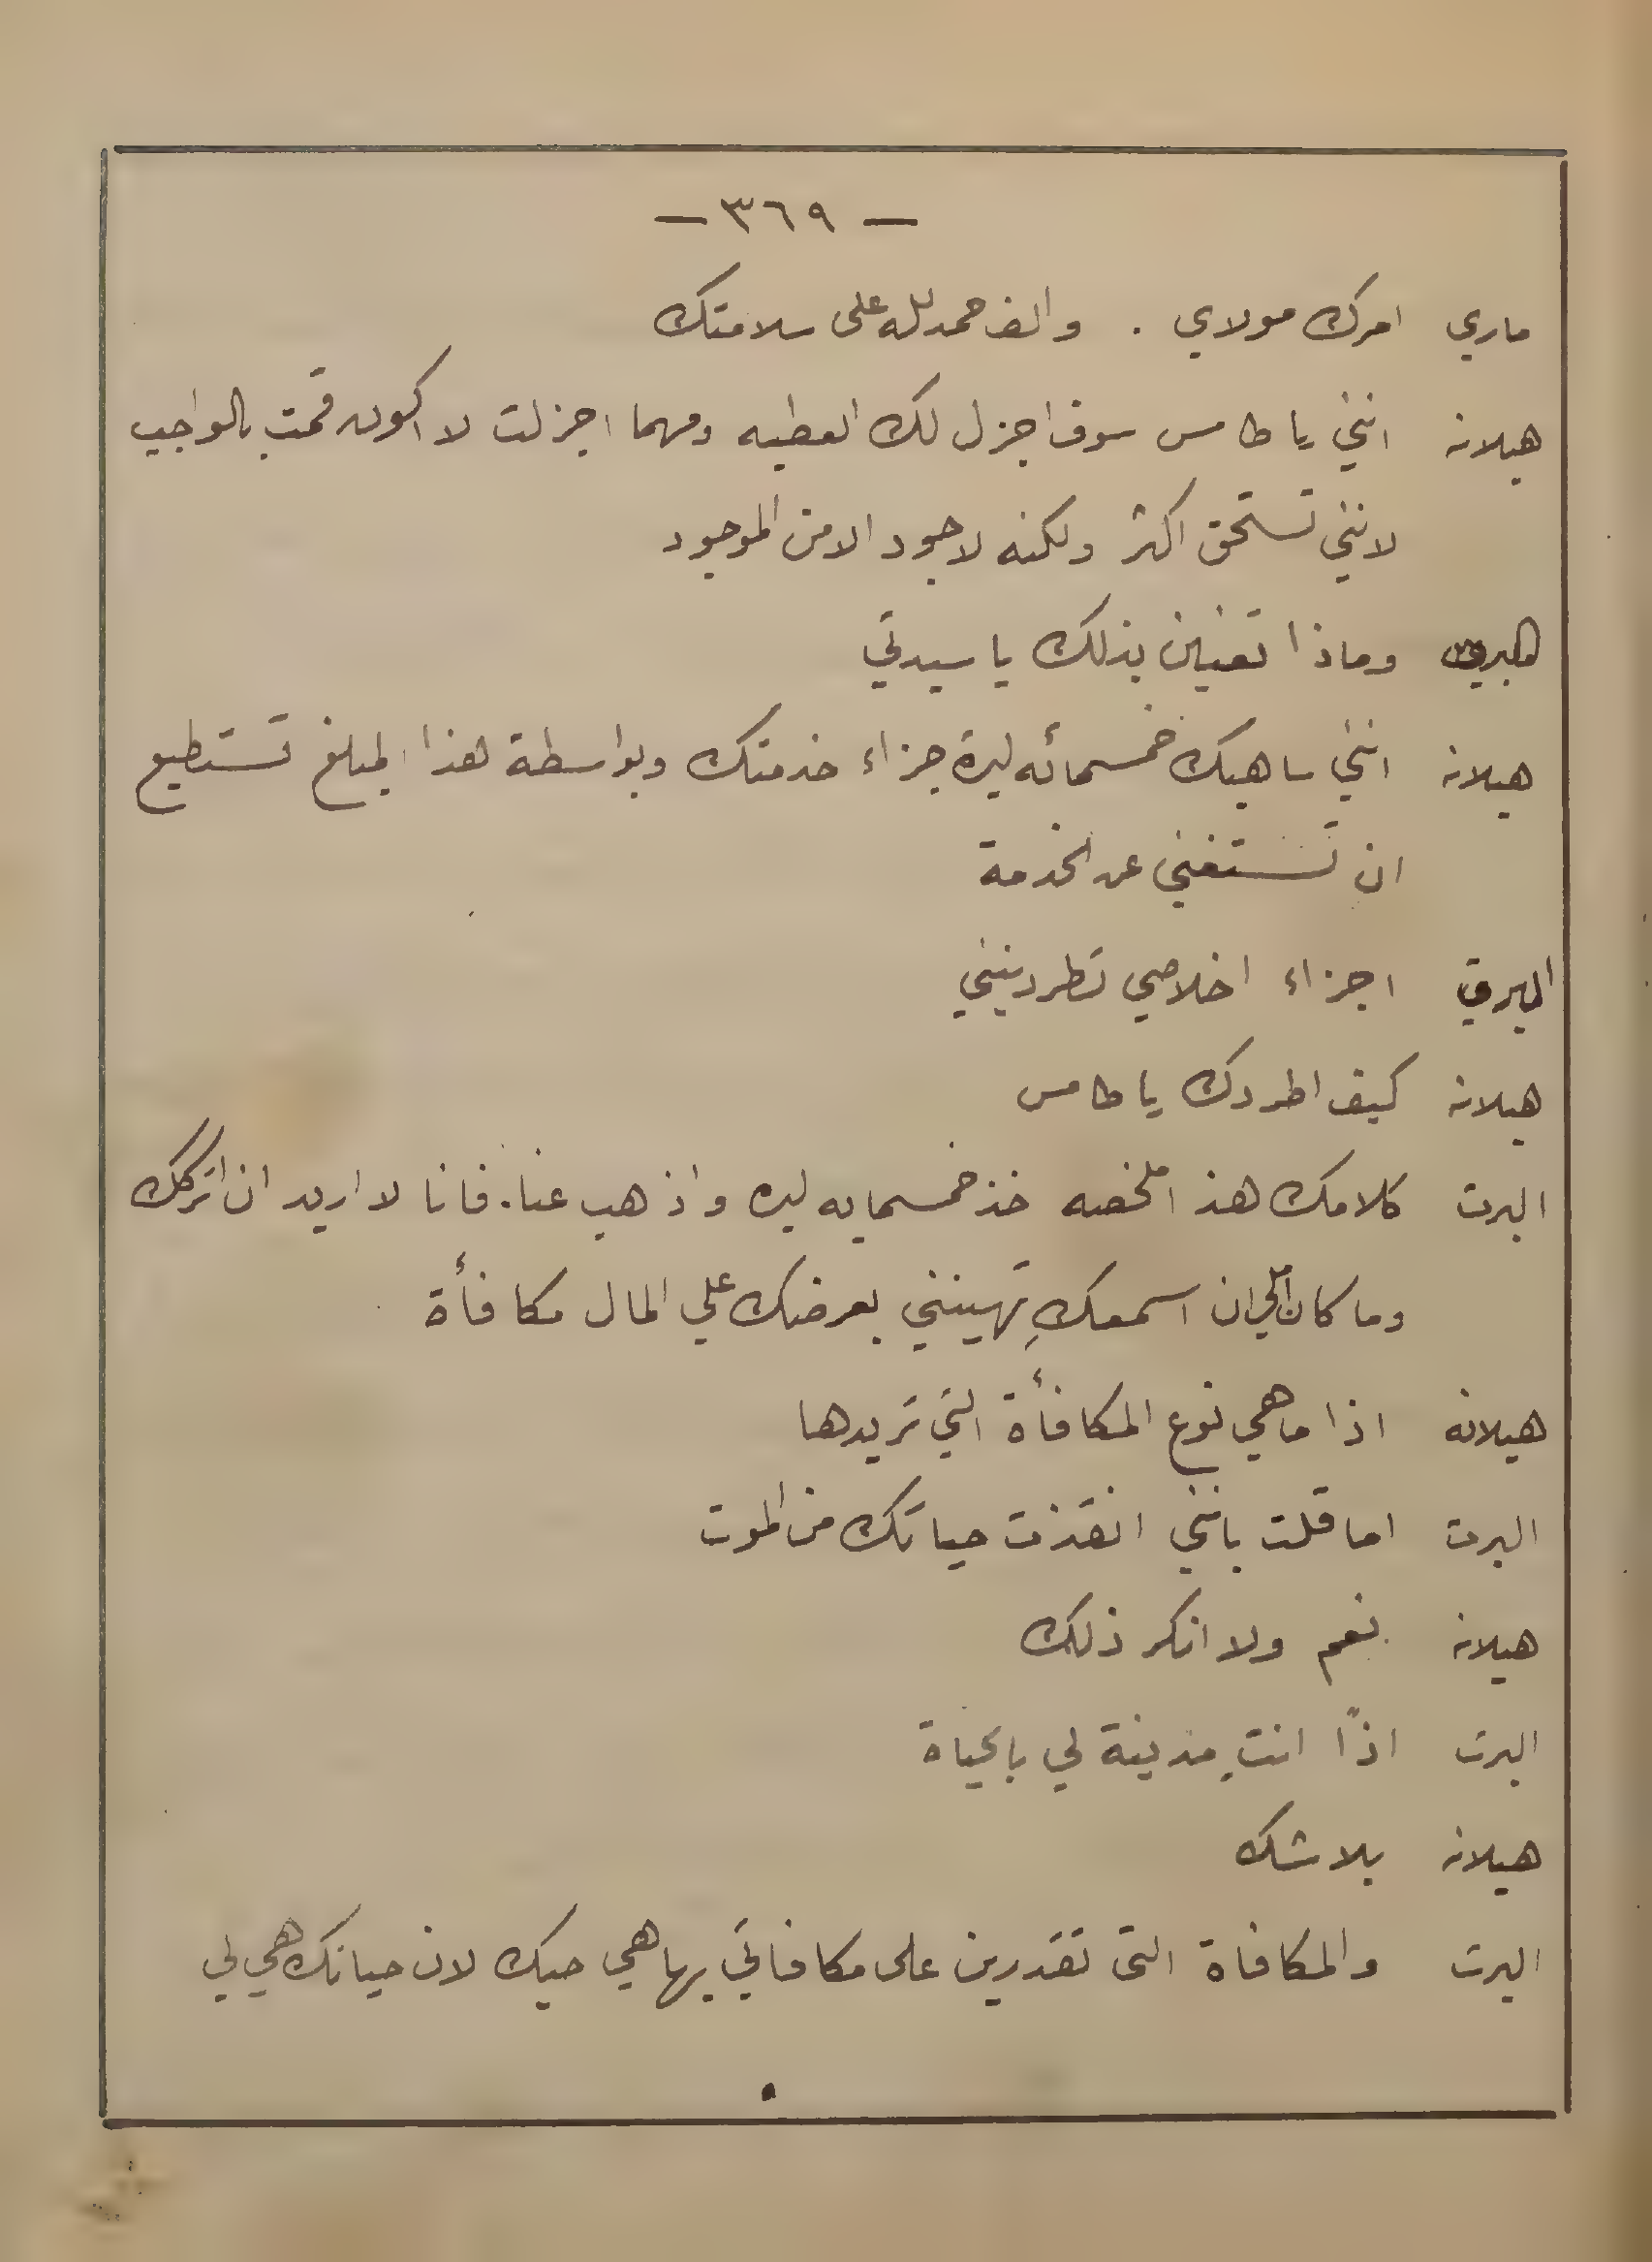 — ٣٦٩ —
ماري امرك مولاي . والف حمد لله على سلامتك
هيلانه انني يا طامس سوف اجزل لك العطيه ومهما اجزلت لا اكون قمت بالواجب
لانني تستحق اكثر ولكنه لا جود الا من الموجود
البرت وماذا تعنين بذلك يا سيدتي
هيلانه انني ساهبك خمسمائه ليرة جزاء خدمتك وبواسطة هذا المبلغ تستطيع
ان تستغني عن الخدمة
البرت اجزاء اخلاصي تطردينني
هيلانه كيف اطردك يا طامس
البرت كلامك هذا ملخصه خذ خمسمايه ليره واذهب عنا. فانا لا اريد ان اتركك
وما كان املي ان اسمعكِ تهينني بعرضك علي المال مكافأة
هيلانه اذا ما هي نوع المكافأة التي تريدها
البرت اما قلت بانني انقذت حياتك من الموت
هيلانه نعم ولا انكر ذلك
البرت اذًا انتِ مدينة لي بالحياة
هيلانه بلا شك
البرت والمكافاة التى تقدرين على مكافاتي بها هي حبك لان حياتك هي لي